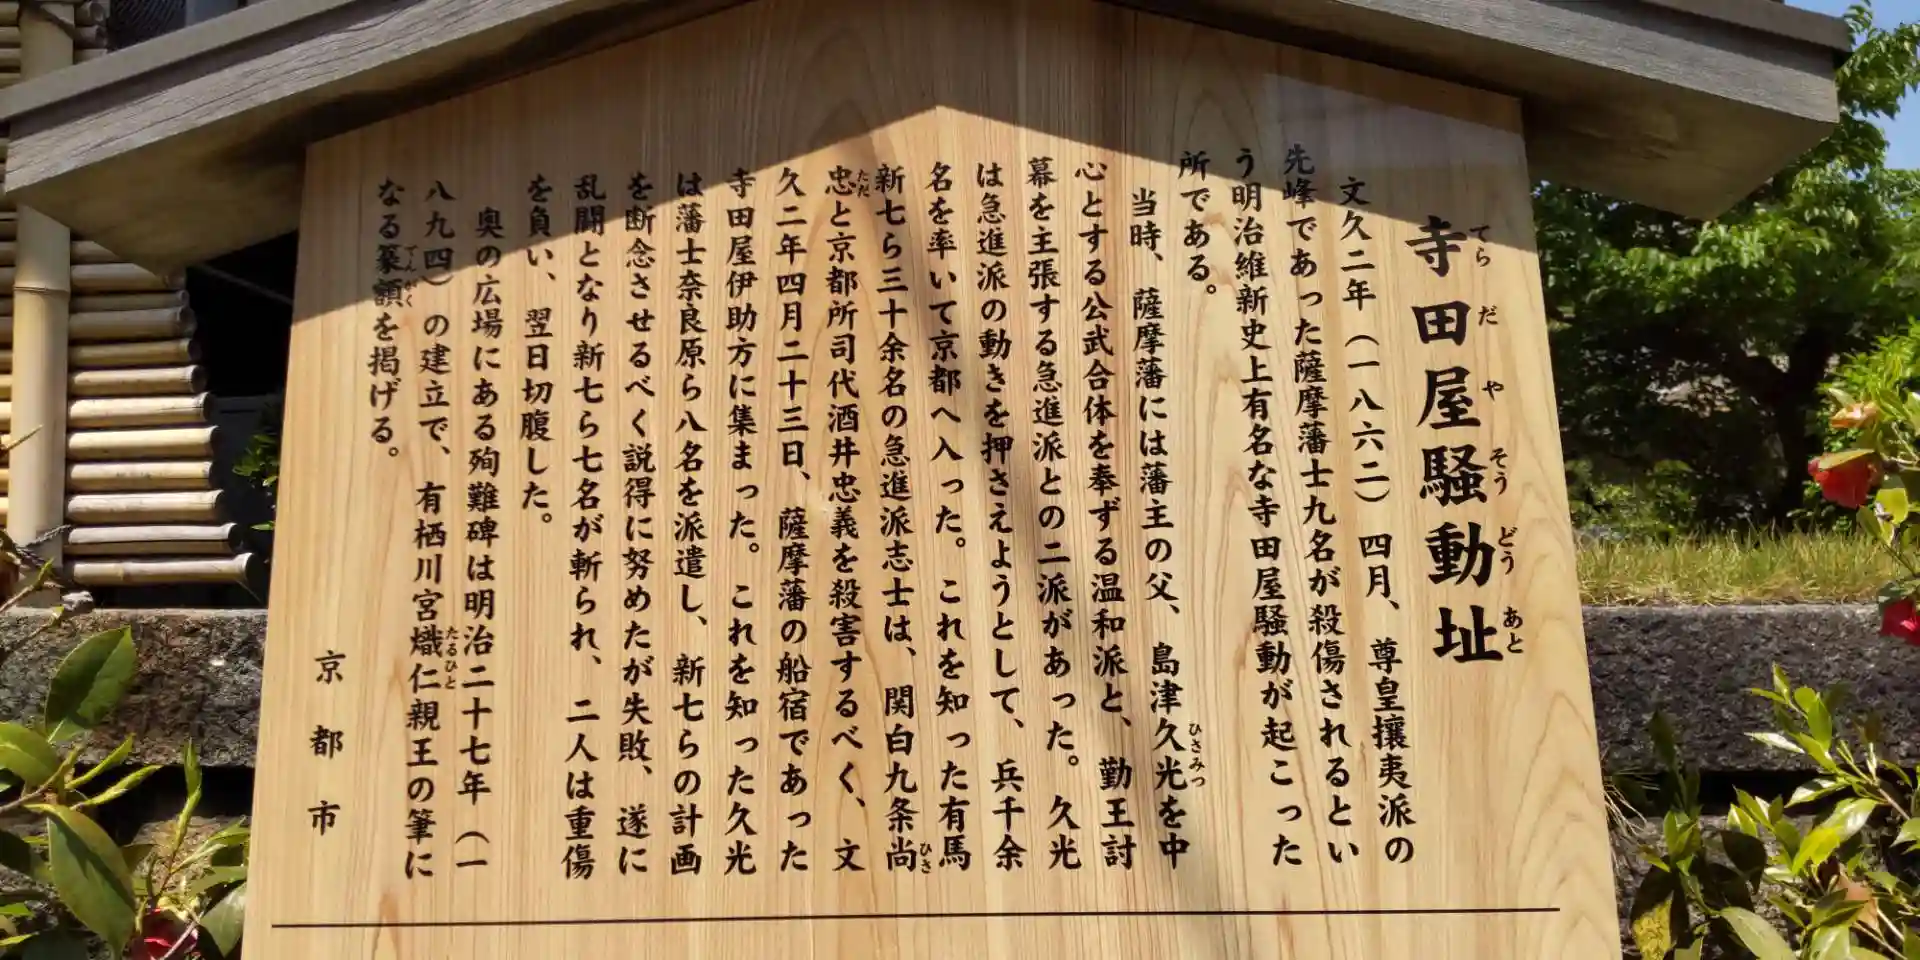 寺田屋騒動址
てらだやそうどうあと
文久二年（一八六二）四月、尊皇攘夷派の
先峰であった薩摩藩士九名が殺傷されるとい
う明治維新史上有名な寺田屋騒動が起こった
所である。
当時、薩摩藩には藩主の父、島津久光を中
ひさみつ
心とする公武合体を奉ずる温和派と、勤王討
幕を主張する急進派との二派があった。久光
は急進派の動きを押さえようとして、兵千余
名を率いて京都へ入った。これを知った有馬
新七ら三十余名の急進派志士は、関白九条尚
ひさ
忠と京都所司代酒井忠義を殺害するべく、文
ただ
久二年四月二十三日、薩摩藩の船宿であった
寺田屋伊助方に集まった。これを知った久光
は藩士奈良原ら八名を派遣し、新七らの計画
を断念させるべく説得に努めたが失敗、遂に
乱闘となり新七ら七名が斬られ、二人は重傷
を負い、翌日切腹した。
奥の広場にある殉難碑は明治二十七年（一
八九四）の建立で、有栖川宮熾仁親王の筆に
たるひと
なる篆額を掲げる。
てんがく
京都市